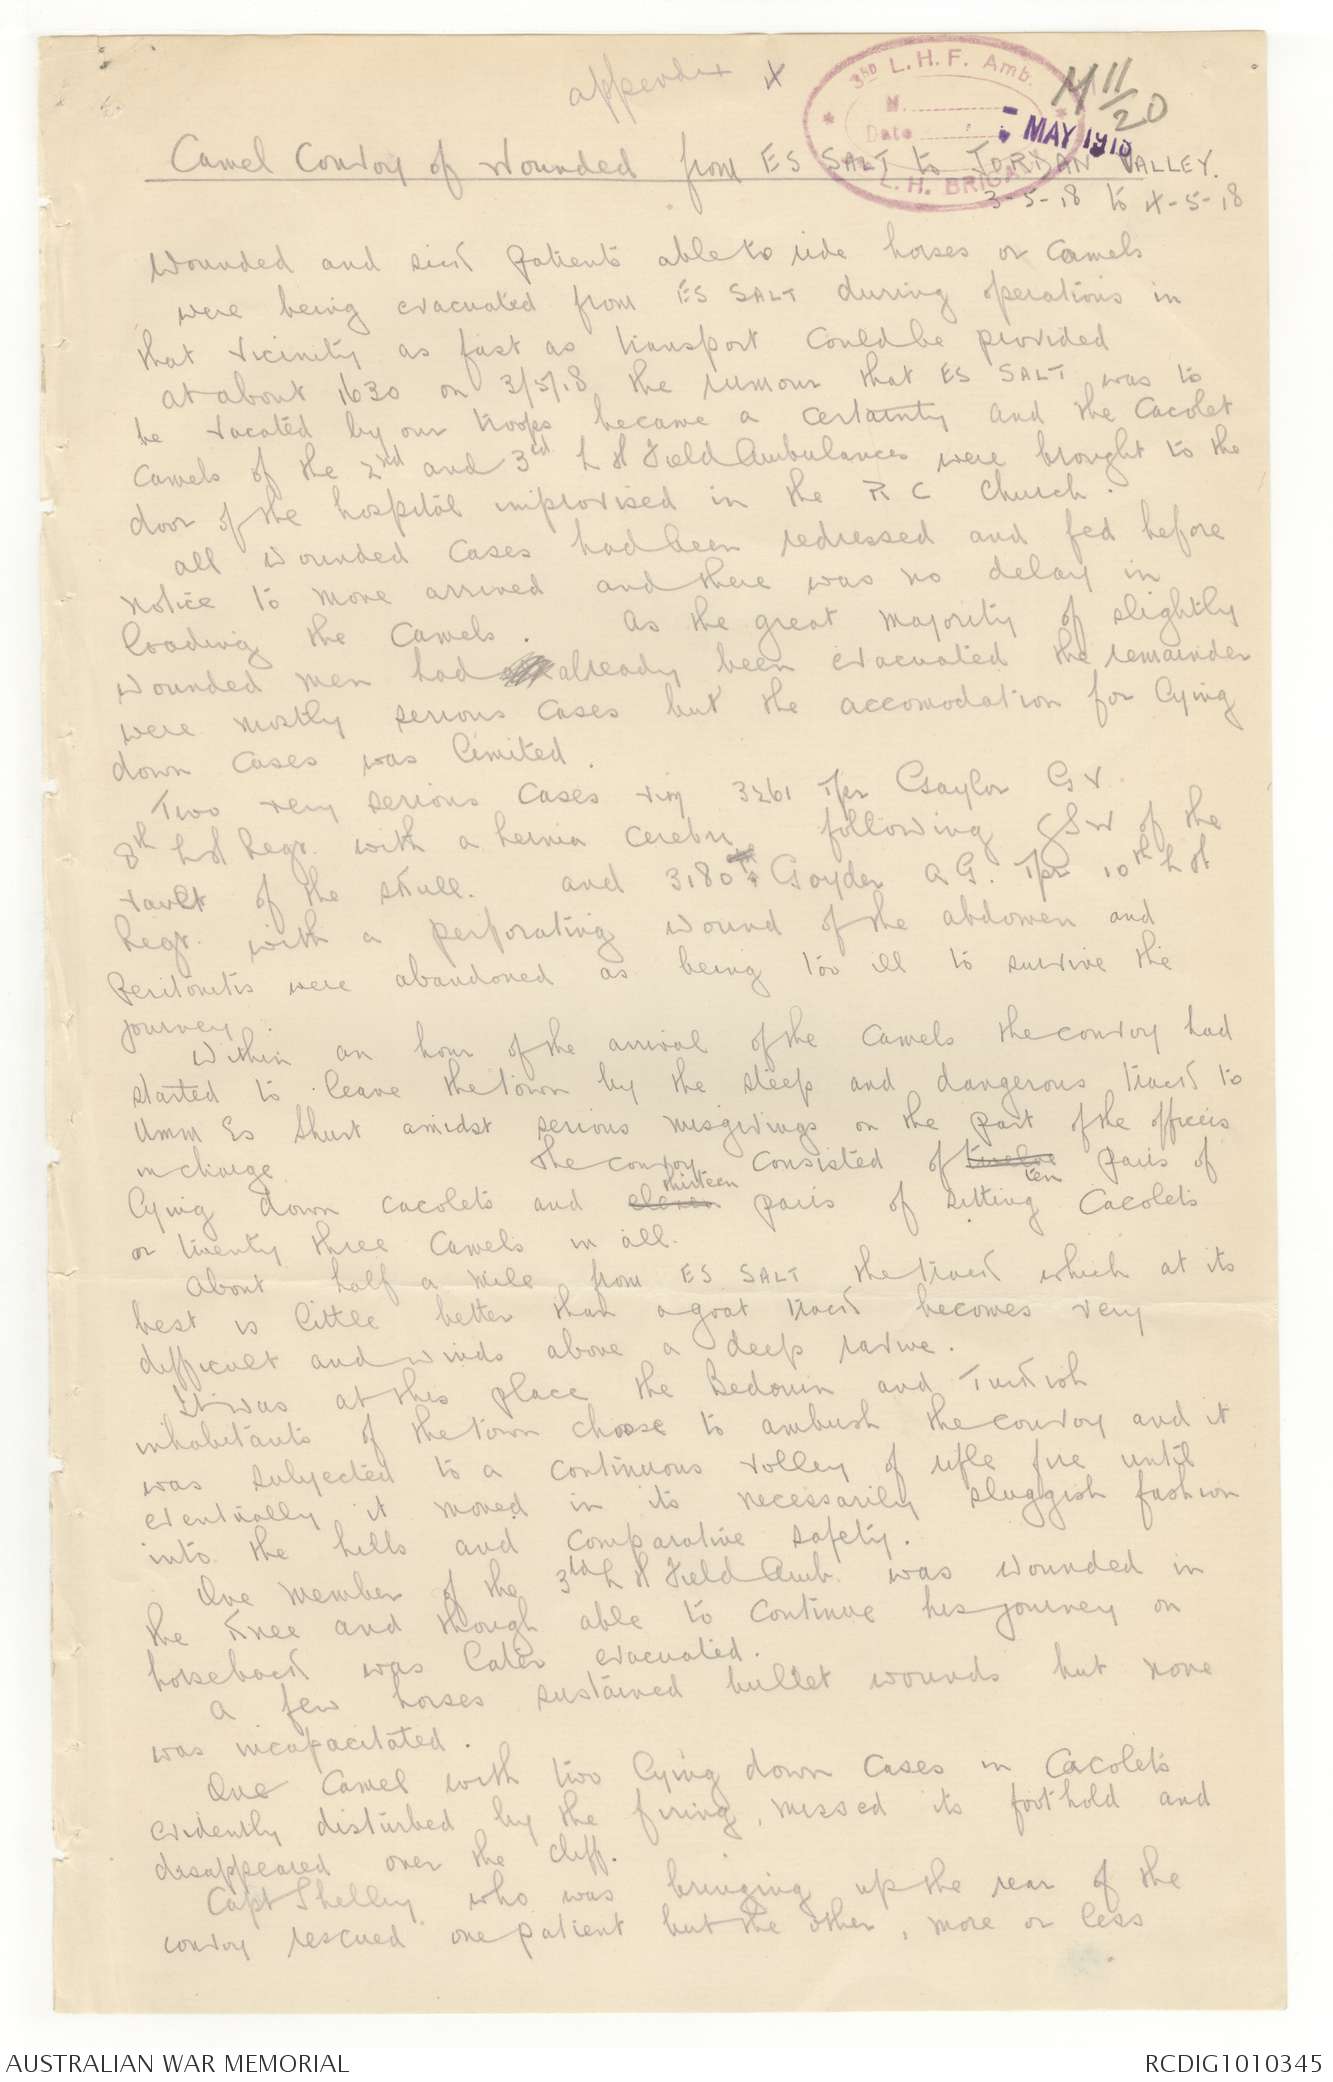 appendix 4
3RD L.H.F. Amb.
N.
Date
- MAY 1918
L.H. BRIGADE
M 11/20
Camel Convoy of Wounded from ES SALT to JORDAN VALLEY.
3-5-18 to 4-5-18
Wounded and sick patients able to ride horses or camels
were being evacuated from ES SALT during operations in
that vicinity as fast as transport could be provided
at about 1630 on 3/5/18 the rumour that ES SALT was to
be vacated by our troops became a certainty and the Cacolet
Camels of the 2nd and 3rd L H Field Ambulances were brought to the
door of the hospital improvised in the R C Church.
all wounded cases had been redressed and fed before
notice to move arrived and there was no delay in
loading the Camels. As the great majority of slightly
wounded men had already been evacuated the remainder
were mostly serious cases but the accomodation for lying
down cases was limited.
Two very serious cases viz 3261 Tpr Gaylor G V.
8th L H Regt. with a hernia cerebri following GSW of the
vault of the skull. and 3180 Goyder A G. Tpr 10th L H
Regt. with a perforating wound of the abdomen and
peritonitis were abandoned as being too ill to survive the
journey.
Within an hour of the arrival of the camels the convoy had
started to leave the town by the steep and dangerous track to
Umm Es Shurt amidst serious misgivings on the part of the officers
in charge The convoy consisted of twelve ten pairs of
lying down cacolets and eleven thirteen pairs of sitting cacolets
or twenty three camels in all.
About half a mile from ES SALT the track which at its
best is little better than a goat track becomes very
difficult and winds above a deep ravine.
It was at this place the Bedouin and Turkish
inhabitants of the town choose to ambush the convoy and it
was subjected to a continuous volley of rifle fire until
eventually it moved in its necessarily sluggish fashion
into the hills and comparative safety.
One member of the 3rd L H Field Amb. was wounded in
the knee and though able to continue his journey on
horseback was later evacuated.
A few horses sustained bullet wounds but none
was incapacitated.
One Camel with two lying down cases in Cacolets
evidently disturbed by the firing, missed its foothold and
disappeared over the cliff.
Capt Shelley who was bringing up the rear of the
convoy rescued one patient but the other, more or less
AUSTRALIAN WAR MEMORIAL
RCDIG1010345